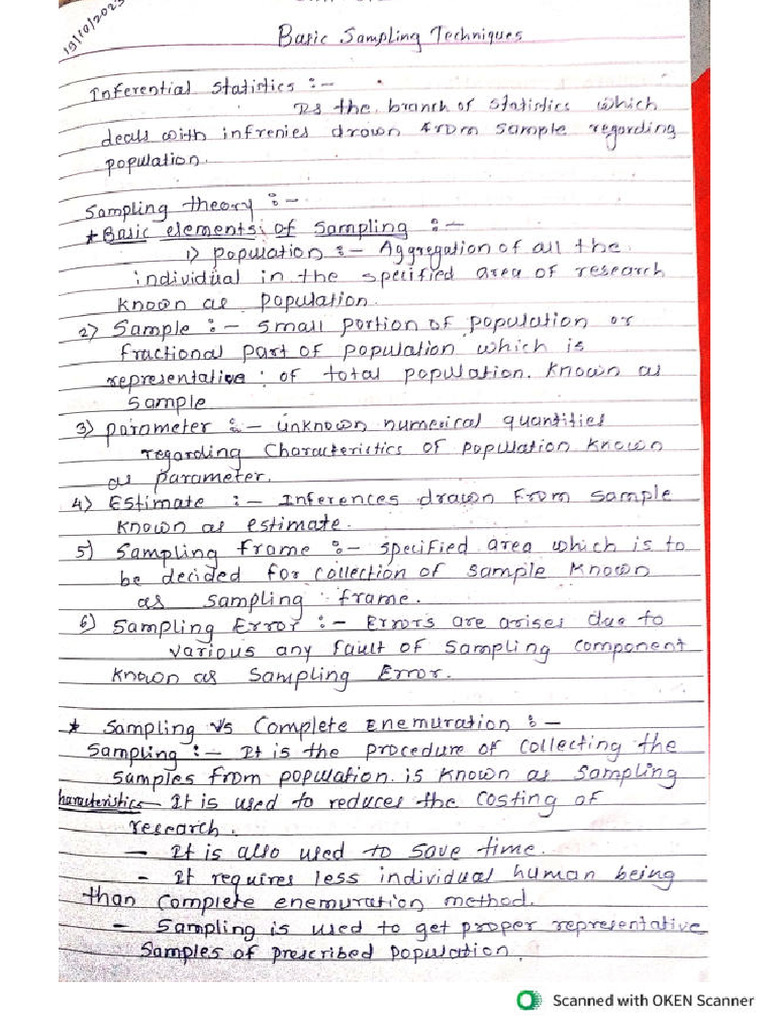 19/10/2023
Basic Sampling Techniques
Inferential Statistics :-
Is the branch of statistics which
deals with infrenies drown from sample regarding
population.
Sampling theory :-
* Basic elements of sampling :-
1) population :- Aggregation of all the
individual in the specified area of research
known as population.
2) Sample :- small portion of population or
fractional part of population which is
representative of total population. known as
sample
3) parameter :- unknown numerical quantities
regarding characteristics of population known
as parameter.
4) Estimate :- Inferences drawn from sample
known as estimate.
5) Sampling frame :- specified area which is to
be decided for collection of sample known
as sampling frame.
6) Sampling Error :- Errors are arises due to
various any fault of sampling component
known as Sampling Error.
* Sampling Vs Complete Enemuration :-
Sampling :- It is the procedure of collecting the
samples from population. is known as sampling
haracteristics - It is used to reduces the costing of
research.
- It is also used to save time.
- It requires less individual human being
than complete enemuration method.
- Sampling is used to get proper representative
samples of prescribed population.
Scanned with OKEN Scanner